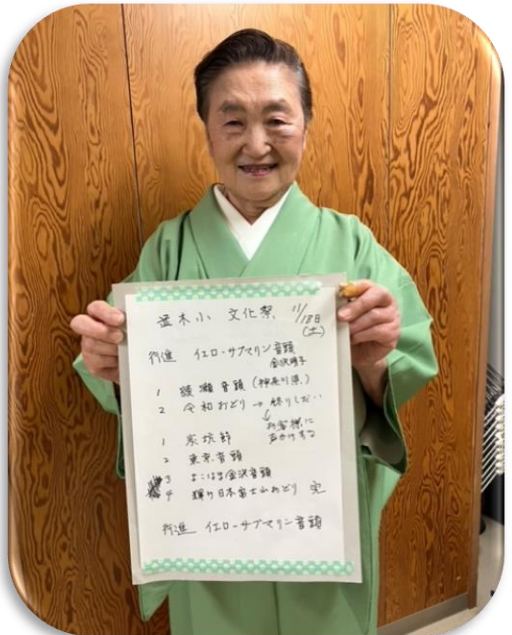 並木小 文化祭 11/18日
(土)
行進 イエローサブマリン音頭
金沢明子
1 綾瀬音頭(神奈川県)
2 令和おどり → 終りしだい
↓
お客様に
声かけする
1 炭坑節
2 東京音頭
3 よこはま金沢音頭
4 輝け日本富士山おどり 完
行進 イエローサブマリン音頭